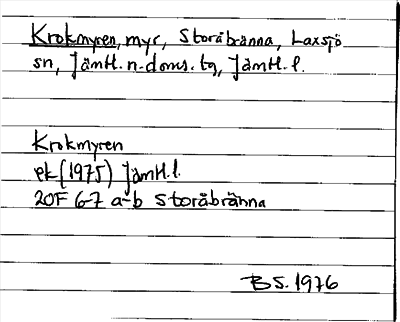 Krokmyren, myr, Storåbränna, Laxsjö
sn, Jämtl. n. doms. tg, Jämtl. l.
Krokmyren
ek (1975) Jämtl. l.
20F 6-7 a-b Storåbränna
BS. 1976